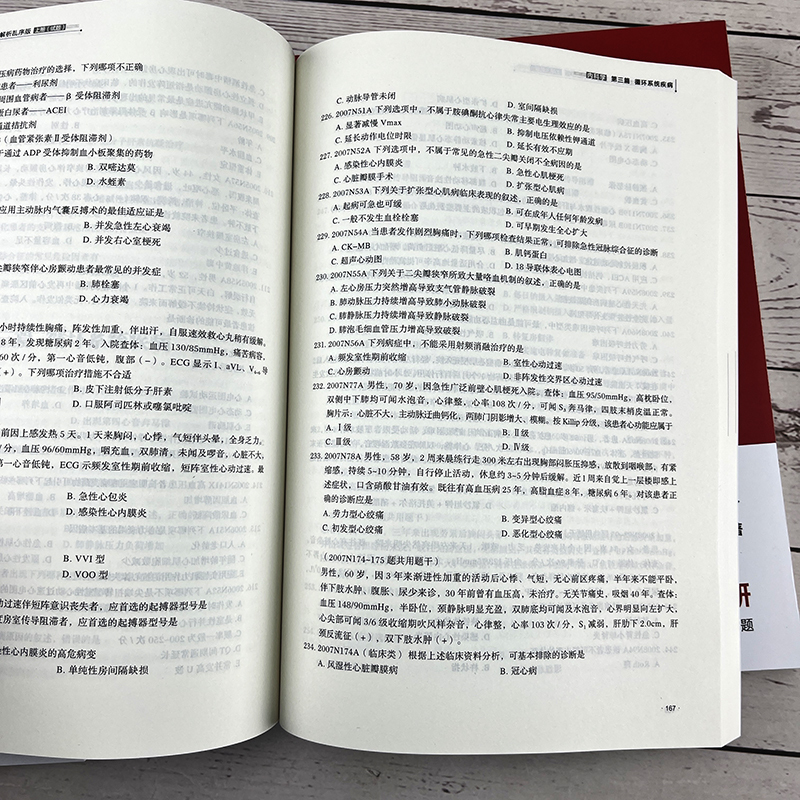 解析乱序版 上册（试题）
压病药物治疗的选择，下列哪项不正确
患者——利尿剂
周围血管病者——β 受体阻滞剂
蛋白尿者——ACEI
通道拮抗剂
（血管紧张素Ⅱ受体阻滞剂）
于通过 ADP 受体抑制血小板聚集的药物
B. 双嘧达莫
D. 水蛭素
应用主动脉内气囊反搏术的最佳适应证是
B. 并发急性左心衰竭
D. 并发右心室梗死
尖瓣狭窄伴心房颤动患者最常见的并发症
B. 肺栓塞
D. 心力衰竭
小时持续性胸痛，阵发性加重，伴出汗，自服速效救心丸稍有缓解，
8年，发现糖尿病 2 年。入院查体：血压 130/85mmHg，痛苦病容，
60 次 / 分，第一心音低钝，腹部（-）。ECG 显示 I、aVL、V₄₋₆ 导
（+）。下列哪项治疗措施不合适
B. 皮下注射低分子肝素
D. 口服阿司匹林或噻氯吡啶
前因上感发热 5 天。1 天来胸闷，心悸，气短伴头晕，全身乏力。
/ 分，血压 96/60mmHg，咽充血，双肺清，未闻及啰音，心脏不大，
第一心音低钝，ECG 示频发室性期前收缩，短阵室性心动过速，最
B. 急性心包炎
D. 感染性心内膜炎
B. VVI 型
D. VOO 型
动过速伴短阵意识丧失者，应首选的起搏器型号是
度房室传导阻滞者，应首选的起搏器型号是
染性心内膜炎的高危病变
B. 单纯性房间隔缺损
内科学 第三篇 循环系统疾病
C. 动脉导管未闭
D. 室间隔缺损
226. 2007N51A 下列选项中，不属于胺碘酮抗心律失常主要电生理效应的是
A. 显著减慢 Vmax
B. 抑制电压依赖性钾通道
C. 延长动作电位时限
D. 延长有效不应期
227. 2007N52A 下列选项中，不属于常见的急性二尖瓣关闭不全病因的是
A. 感染性心内膜炎
B. 急性心肌梗死
C. 心脏瓣膜手术
D. 扩张型心肌病
228. 2007N53A 下列关于扩张型心肌病临床表现的叙述，正确的是
A. 起病可急也可缓
B. 可在成年人任何年龄发病
C. 一般不发生血栓栓塞
D. 可早期发生全心扩大
229. 2007N54A 当患者发作剧烈胸痛时，下列哪项检查结果正常，可排除急性冠脉综合征的诊断
A. CK-MB
B. 肌钙蛋白
C. 超声心动图
D. 18 导联体表心电图
230. 2007N55A 下列关于二尖瓣狭窄所致大量咯血机制的叙述，正确的是
A. 左心房压力突然增高导致支气管静脉破裂
B. 肺动脉压力持续增高导致肺小动脉破裂
C. 肺静脉压力持续增高导致肺静脉破裂
D. 肺泡毛细血管压力增高导致破裂
231. 2007N56A 下列病症中，不能采用射频消融治疗的是
A. 频发室性期前收缩
B. 室性心动过速
C. 心房颤动
D. 非阵发性交界区心动过速
232. 2007N77A 男性，70 岁，因急性广泛前壁心肌梗死入院。查体：血压 95/50mmHg，高枕卧位，
双侧中下肺均可闻水泡音，心律整，心率 108 次 / 分，可闻 S₃ 奔马律，四肢末梢皮温正常。
胸片示：心脏不大，主动脉迂曲钙化，两肺门阴影增大、模糊。按 Killip 分级，该患者心功能应属于
A. Ⅰ级
B. Ⅱ级
C. Ⅲ级
D. Ⅳ级
233. 2007N78A 男性，58 岁，2 周来晨练行走 300 米左右出现胸部闷胀压抑感，放散到咽喉部，有紧
缩感，持续 5~10 分钟，自行停止活动，休息约 3~5 分钟后缓解。近 1 周来自觉上一层楼即感上
述症状，口含硝酸甘油有效。既往有高血压病 25 年，高脂血症 8 年，糖尿病 6 年。对该患者正
确的诊断应是
A. 劳力型心绞痛
B. 变异型心绞痛
C. 初发型心绞痛
D. 恶化型心绞痛
（2007N174~175 题共用题干）
男性，60 岁，因 3 年来渐进性加重的活动后心悸、气短，无心前区疼痛，半年来不能平卧，
伴下肢水肿、腹胀、尿少来诊，30 年前曾有血压高，未治疗。无关节痛史，吸烟 40 年。查体：
血压 148/90mmHg，半卧位，颈静脉明显充盈，双肺底均可闻及水泡音，心界明显向左扩大，
心尖部可闻 3/6 级收缩期吹风样杂音，心律整，心率 103 次 / 分，S₁ 减弱，肝肋下 2.0cm，肝
颈反流征（+），双下肢水肿（+）。
234. 2007N174A（临床类） 根据上述临床资料分析，可基本排除的诊断是
A. 风湿性心脏瓣膜病
B. 冠心病
· 167 ·
研
题